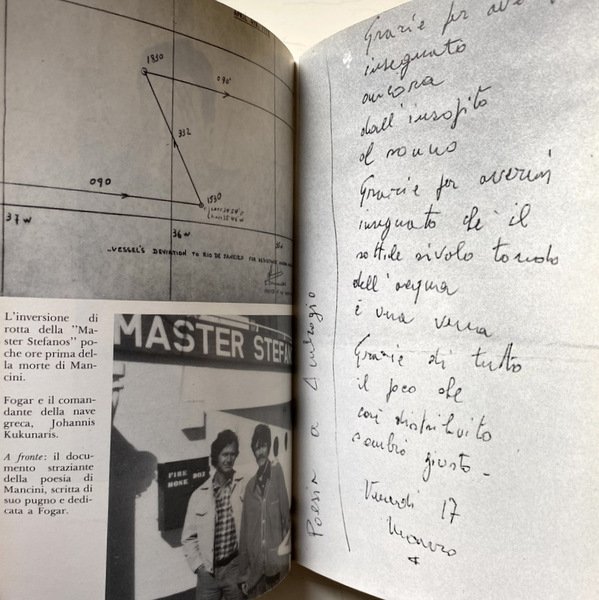 1830
090°
332
090
1530
37 W
36 W
VESSEL'S DEVIATION TO RIO DE JANEIRO FOR
L'inversione di
rotta della "Ma-
ster Stefanos" po-
che ore prima del-
la morte di Man-
cini.
Fogar e il coman-
dante della nave
greca, Johannis
Kukunaris.
A fronte: il docu-
mento straziante
della poesia di
Mancini, scritta di
suo pugno e dedi-
cata a Fogar.
MASTER STEFAN
FIRE
HOSE BOX
Poesia a Ambrogio
Grazie per
insegnato
ancora
dall'insolito
al sonno
Grazie per avermi
insegnato che il
sottile rivolo tondo
dell'acqua
è una vena
Grazie di tutto
il poco che
così distribuito
sembrò giusto -
Venerdì 17
Mauro